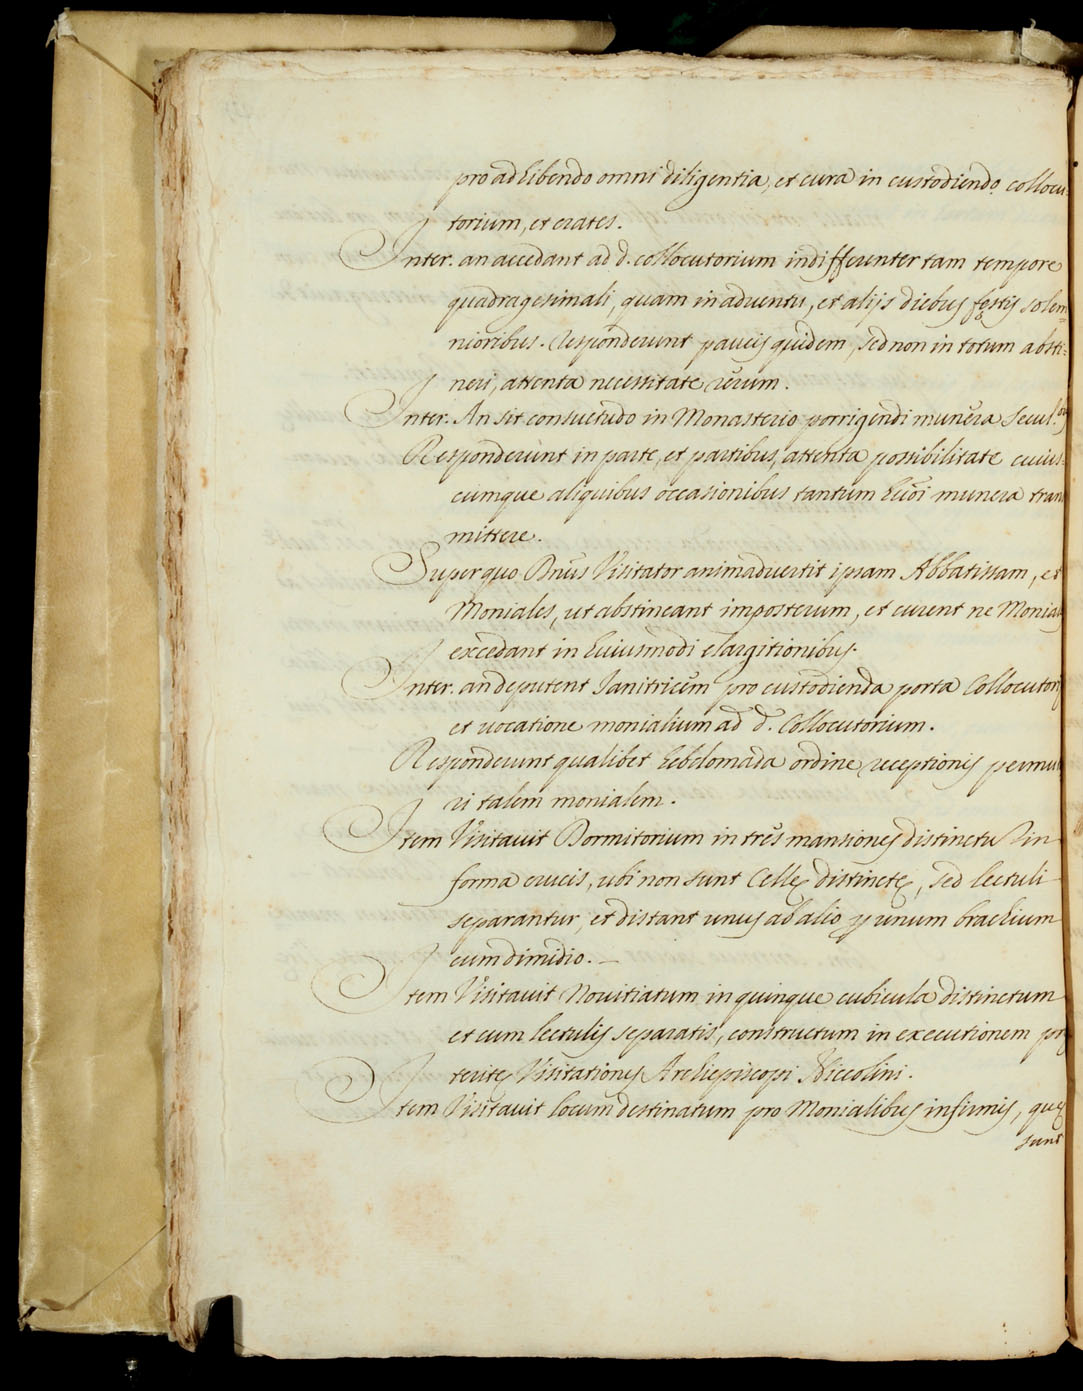 pro adhibendo omni diligentia, et cura in custodiendo collocu-
torium, et crates.
Inter. an accedant ad d. collocutorium indifferenter tam tempore
quadragesimali, quam in aduentu, et alijs diebus festis solem=
nioribus. Responderunt paucis quidem, sed non in totum absti=
neri, attenta necessitate rerum.
Inter. An sit consuetudo in Monasterio porrigendi munera secul.
Responderunt in parte, et partibus, attenta possibilitate cuius=
cumque aliquibus occasionibus tantum huiusmodi munera trans
mittere.
Super quo Dnus Visitator animaduertit ipsam Abbatissam, et
Moniales, ut abstineant imposterum, et curent ne Monial
excedant in huiusmodi elargitionibus.
Inter. an deputent Janitricem pro custodienda porta Collocutorij
et uocatione monialium ad d. Collocutorium.
Responderunt qualibet hebdomada ordine receptionis permu
ri talem monialem.
Item Visitauit Dormitorium in tres mansiones distinctu in
forma crucis, ubi non sunt Cellę distinctę, sed lectuli
separantur, et distant unus ab alio p unum brachium
cum dimidio. –
Item Visitauit Nouitiatum in quinque cubicula distinctum
et cum lectulis separatis, constructum in executionem prę
teritę Visitationis Archiepiscopi Niccolini.
Item Visitauit locum destinatum pro Monialibus infirmis, quę
sunt